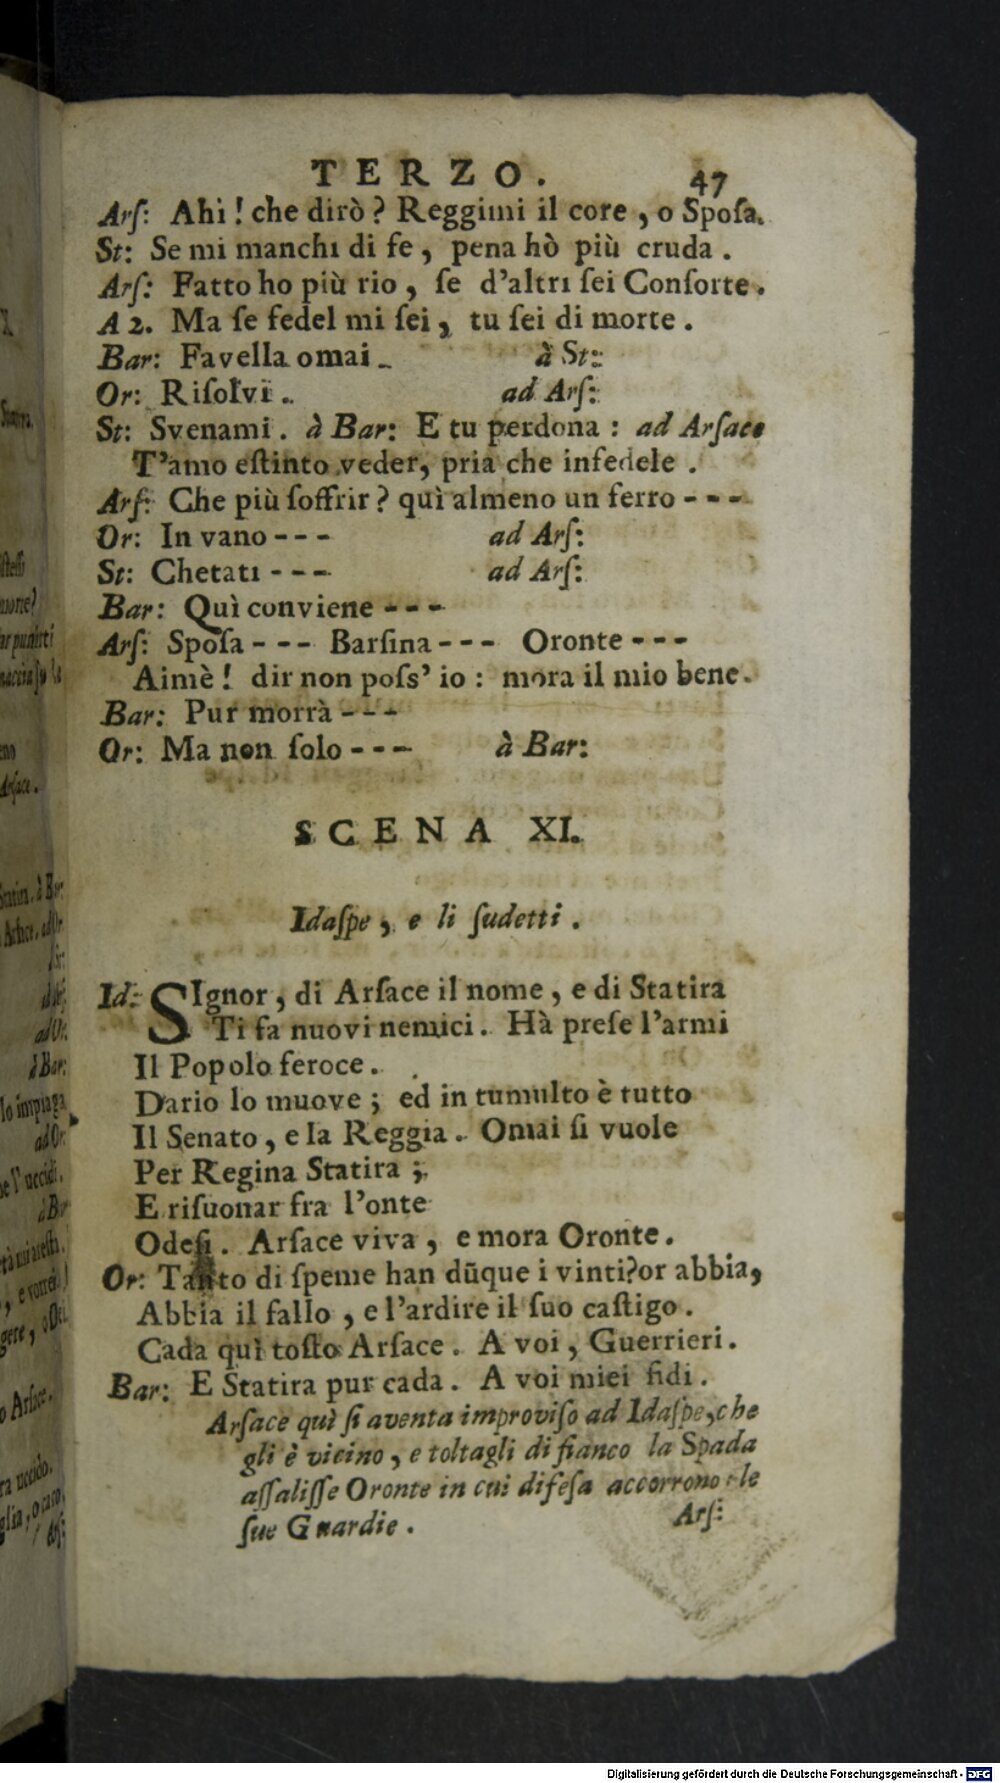 TERZO. 47
Arſ: Ahi! che dirò? Reggimi il core, o Spoſa.
St: Se mi manchi di fe, pena hò più cruda.
Arſ: Fatto ho più rio, ſe d'altri ſei Conſorte.
A 2. Ma ſe fedel mi ſei, tu ſei di morte.
Bar: Favella omai. à St:
Or: Riſolvi. ad Arſ:
St: Svenami. à Bar: E tu perdona: ad Arſace
T'amo eſtinto veder, pria che infedele.
Arſ: Che più ſoffrir? quì almeno un ferro - - -
Or: In vano - - - ad Arſ:
St: Chetati - - - ad Arſ:
Bar: Quì conviene - - -
Arſ: Spoſa - - - Barſina - - - Oronte - - -
Aimè! dir non poſs' io: mora il mio bene.
Bar: Pur morrà - - -
Or: Ma non ſolo - - - à Bar:
SCENA XI.
Idaſpe, e li ſudetti.
Id: SIgnor, di Arſace il nome, e di Statira
Ti fa nuovi nemici. Hà preſe l'armi
Il Popolo feroce.
Dario lo muove; ed in tumulto è tutto
Il Senato, e la Reggia. Omai ſi vuole
Per Regina Statira;
E riſuonar fra l'onte
Odeſi. Arſace viva, e mora Oronte.
Or: Tanto di ſpeme han dūque i vinti? or abbia,
Abbia il fallo, e l'ardire il ſuo caſtigo.
Cada quì toſto Arſace. A voi, Guerrieri.
Bar: E Statira pur cada. A voi miei fidi.
Arſace quì ſi aventa improviſo ad Idaſpe, che
gli è vicino, e toltagli di fianco la Spada
aſſaliſſe Oronte in cui difeſa accorrono le
ſue Guardie. Arſ:
Digitalisierung gefördert durch die Deutsche Forschungsgemeinschaft - DFG